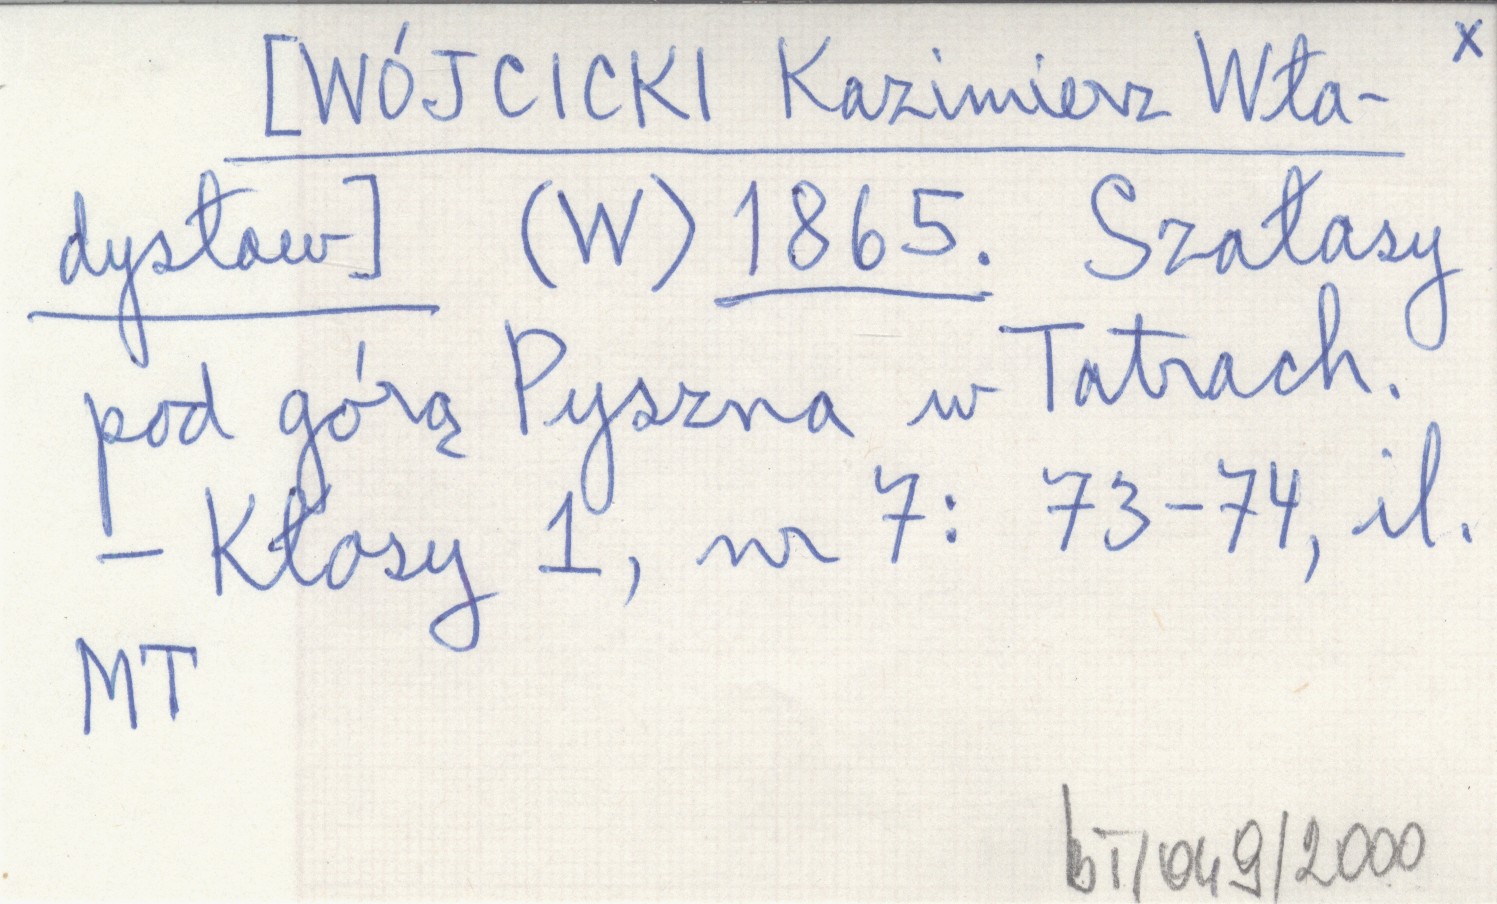 x
[WÓJCICKI Kazimierz Wła-
dysław] (W) 1865. Szałasy
pod górą Pyszna w Tatrach.
– Kłosy 1, nr 7: 73–74, il.
MT
bT/049/2000